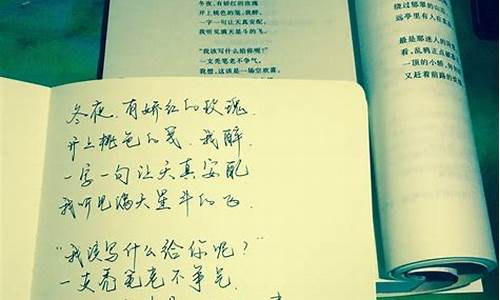 冬夜，有娇红的玫瑰
开上桃色的笺，我醉，
一字一句让天真安配，
我听见满天星斗的飞。
“我该写什么给你呢？”
一支秃笔老不争气。
我想，这该是一场空欢喜，
绕过郁翠的山
远亭里有人在
最是那迷人的
看，乱鸦正点
一顶的小轿，
又赶着前路的
冬夜，有娇红的玫瑰，
开上桃色的笺，我醉，
一字一句让天真安配
我听见满天星斗的飞。
“我该写什么给你呢？”
一支秃笔老不争气。